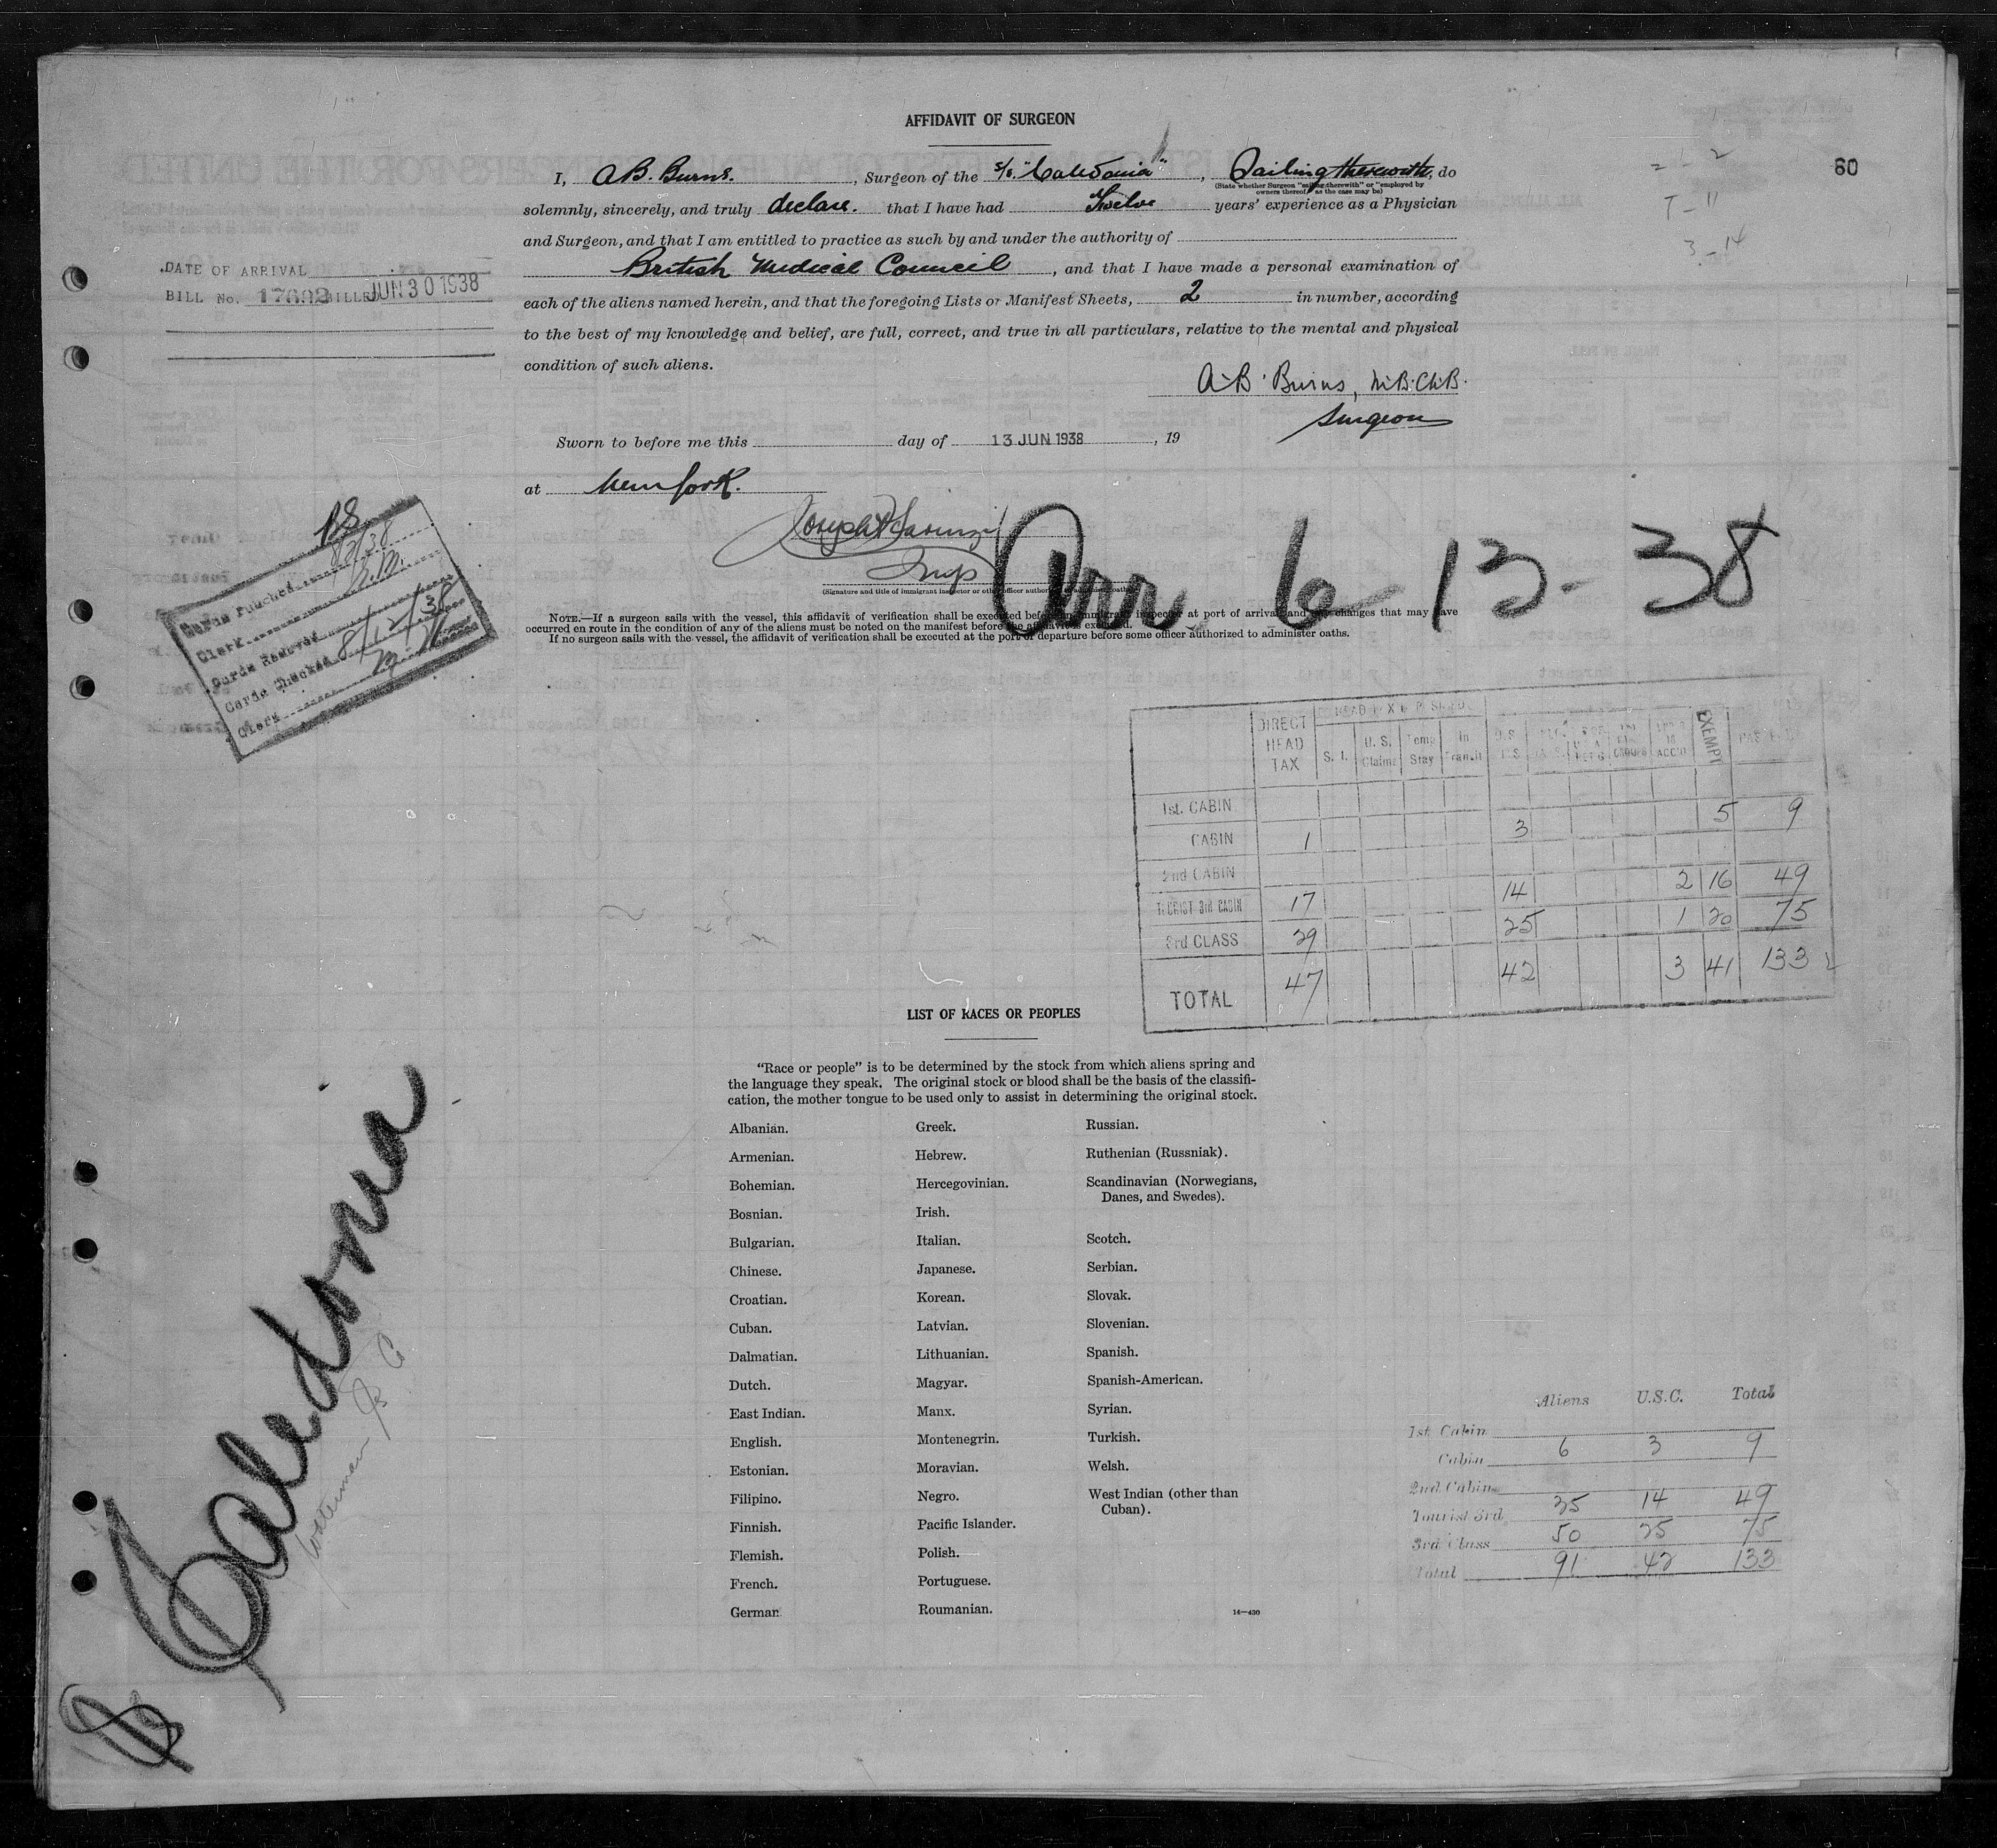 AFFIDAVIT OF SURGEON
I, A.B. Burns. , Surgeon of the S/S. "Caledonia" , Sailing therewith, do
(State whether Surgeon "sailing therewith" or "employed by
owners thereof," as the case may be)
solemnly, sincerely, and truly declare. that I have had Twelve years' experience as a Physician
and Surgeon, and that I am entitled to practice as such by and under the authority of
British Medical Council , and that I have made a personal examination of
each of the aliens named herein, and that the foregoing Lists or Manifest Sheets, 2 in number, according
to the best of my knowledge and belief, are full, correct, and true in all particulars, relative to the mental and physical
condition of such aliens.
A.B. Burns, M.B. Ch.B.
Surgeon
Sworn to before me this day of 13 JUN 1938 , 19
at New York.
Insp
(Signature and title of immigrant inspector or other officer authorized to administer oaths)
NOTE.—If a surgeon sails with the vessel, this affidavit of verification shall be executed before an immigrant inspector at port of arrival and any changes that may have
occurred en route in the condition of any of the aliens must be noted on the manifest before the affidavit is executed.
If no surgeon sails with the vessel, the affidavit of verification shall be executed at the port of departure before some officer authorized to administer oaths.
60
= 1 - 2
T - 11
3 - 14
DATE OF ARRIVAL
BILL No. 17692 BILLED JUN 30 1938
Arr. 6-13-38
Cards Punched 8/2/38
Clerk
Cards Removed
Cards Checked 8/12/38
Clerk
DIRECT HEAD TAX
S. I. U. S. Claims Temp Stay In Transit
EXEMPT
1st. CABIN
CABIN 1 3 5 9
2nd CABIN
TOURIST 3rd CABIN 17 14 2 16 49
3rd CLASS 29 25 1 20 75
TOTAL 47 42 3 41 133
LIST OF RACES OR PEOPLES
"Race or people" is to be determined by the stock from which aliens spring and
the language they speak. The original stock or blood shall be the basis of the classifi-
cation, the mother tongue to be used only to assist in determining the original stock.
Albanian.
Armenian.
Bohemian.
Bosnian.
Bulgarian.
Chinese.
Croatian.
Cuban.
Dalmatian.
Dutch.
East Indian.
English.
Estonian.
Filipino.
Finnish.
Flemish.
French.
German.
Greek.
Hebrew.
Hercegovinian.
Irish.
Italian.
Japanese.
Korean.
Latvian.
Lithuanian.
Magyar.
Manx.
Montenegrin.
Moravian.
Negro.
Pacific Islander.
Polish.
Portuguese.
Roumanian.
Russian.
Ruthenian (Russniak).
Scandinavian (Norwegians,
Danes, and Swedes).
Scotch.
Serbian.
Slovak.
Slovenian.
Spanish.
Spanish-American.
Syrian.
Turkish.
Welsh.
West Indian (other than
Cuban).
14—430
Aliens U.S.C. Total
1st. Cabin
Cabin 6 3 9
2nd Cabin
Tourist 3rd 35 14 49
3rd Class 50 25 75
Total 91 42 133
Caledonia